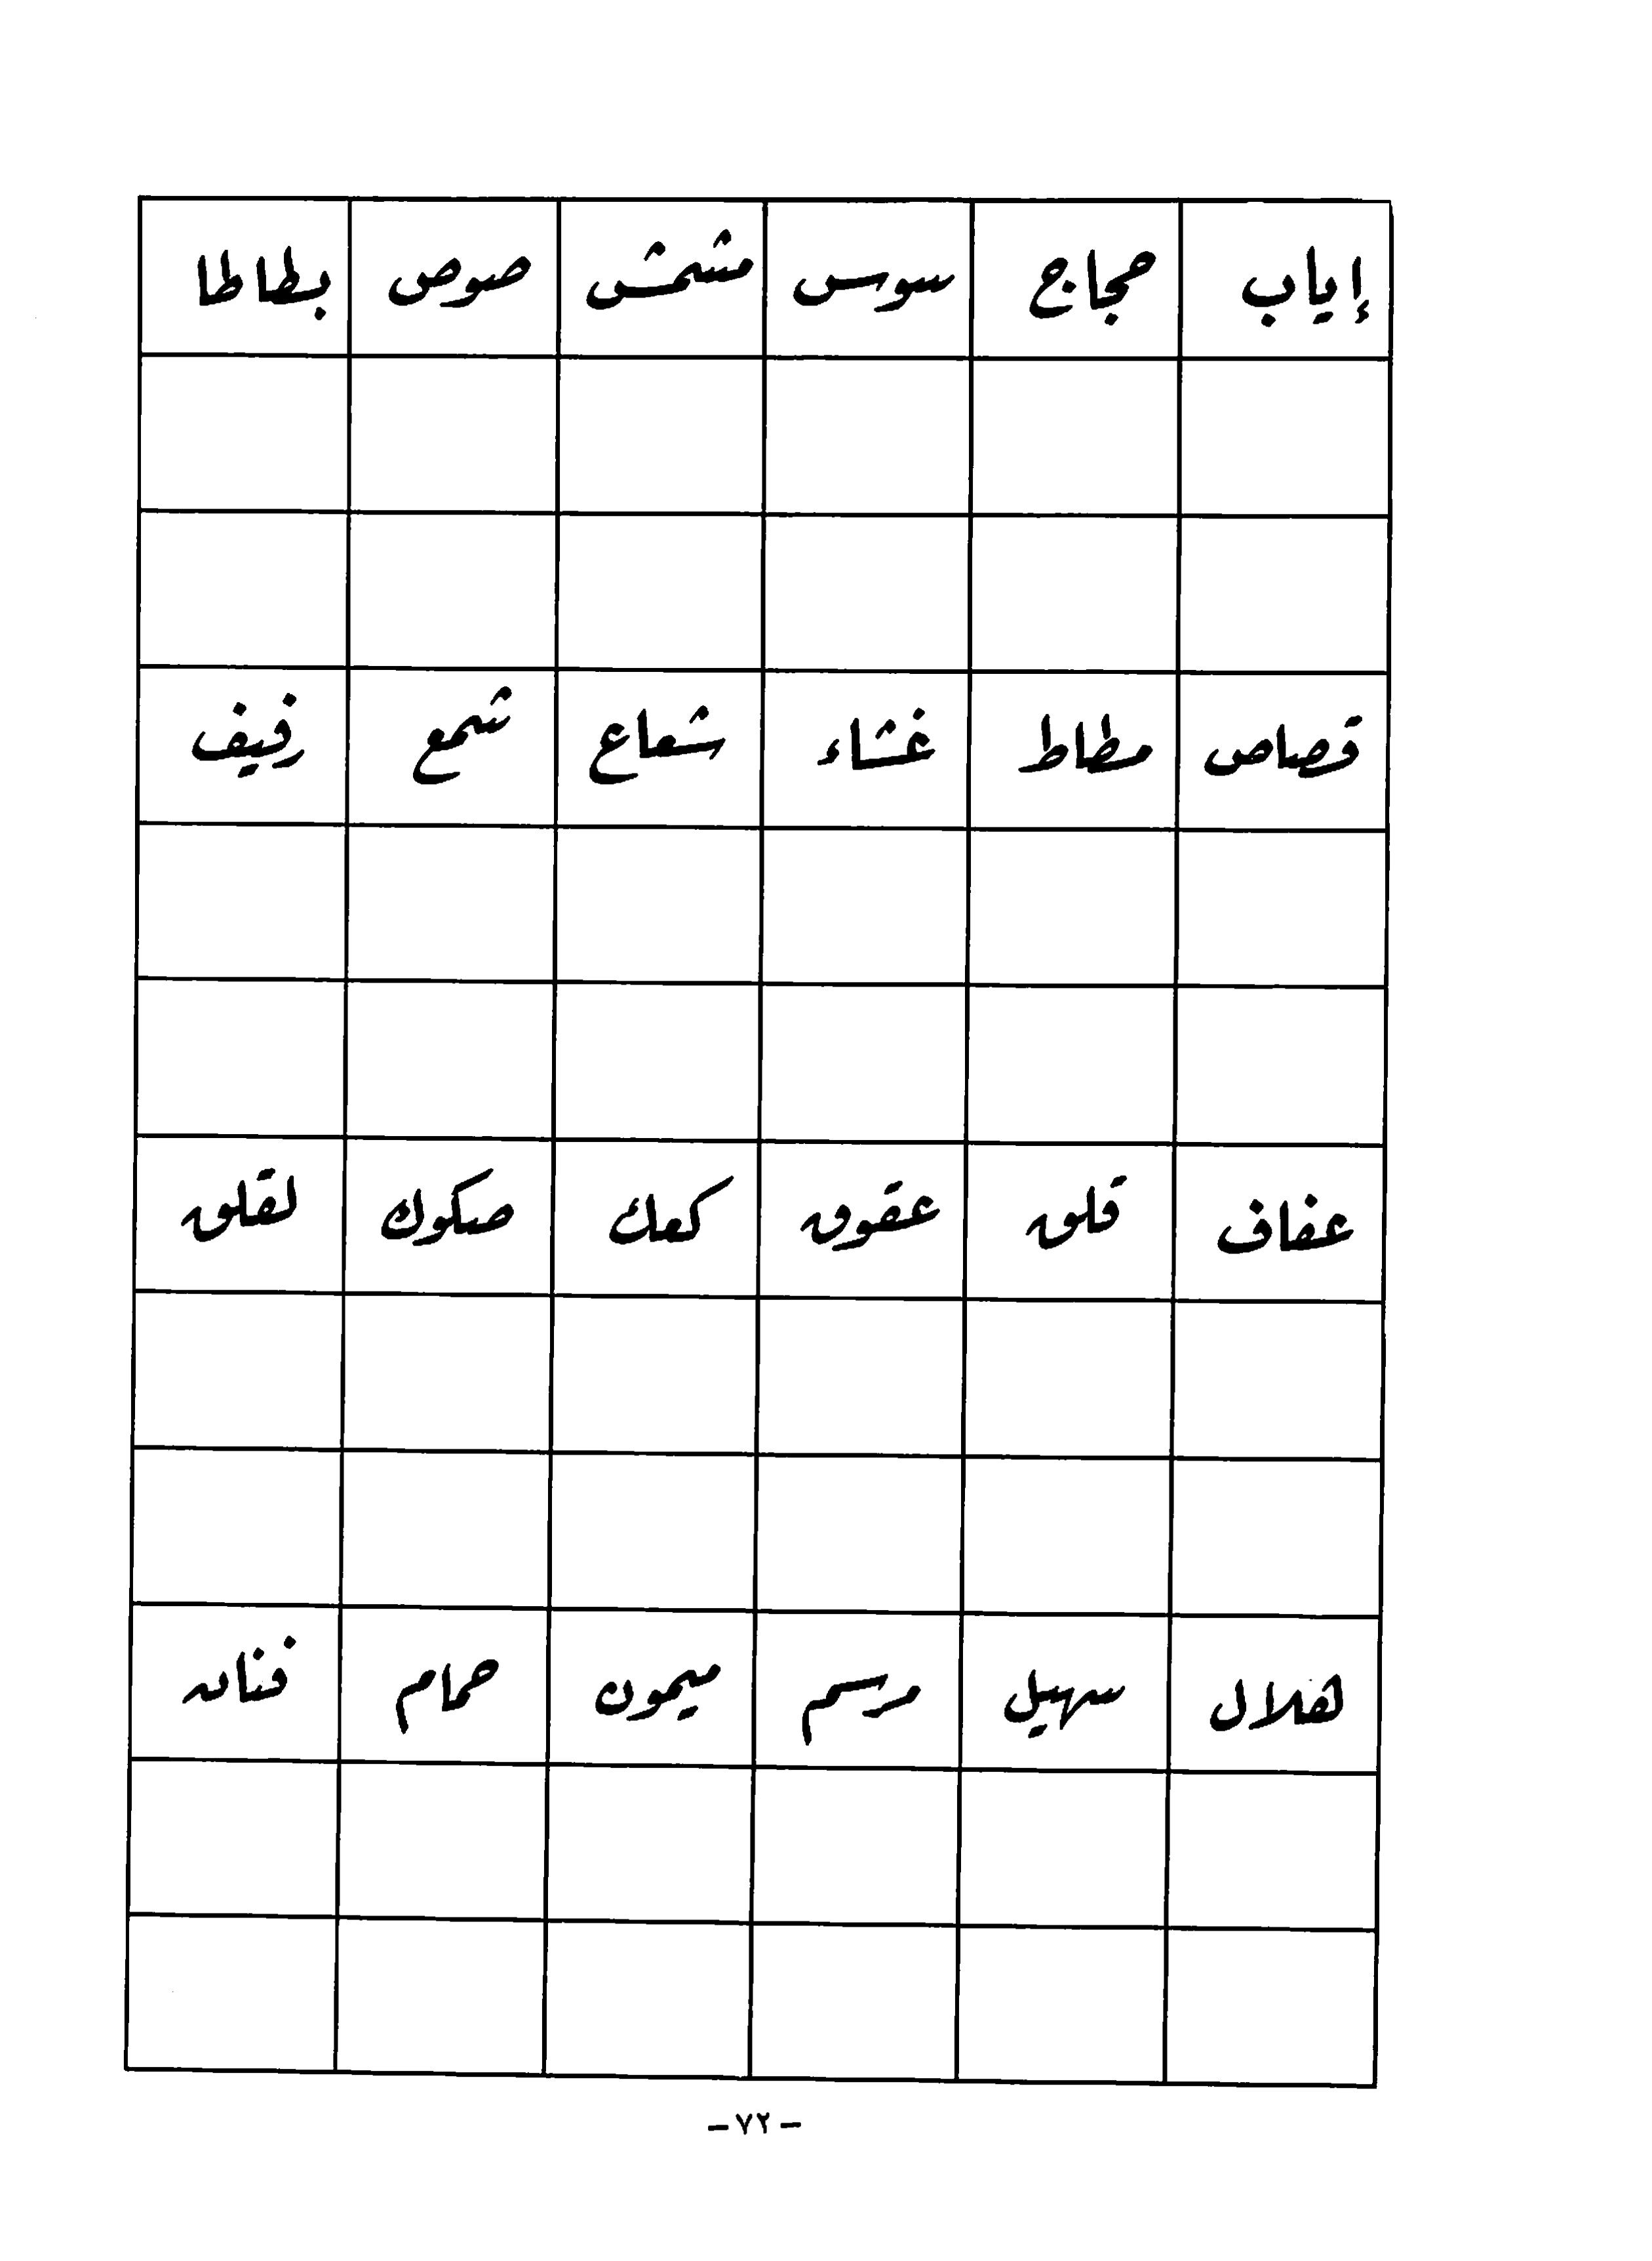 إياب حجاج سوس مشمش صوص بطاطا
قصاص مطاط غشاء شعاع شمع رفيف
عفاف قلق عقوق كعك صكوك لقلق
هلال سهيل مرسم ميمون حمام فنان
- ٧٢ -